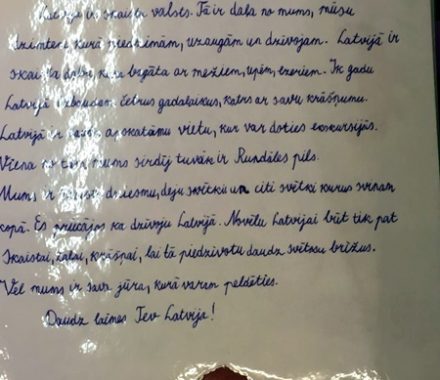 Latvija ir skaista valsts. Tā ir daļa no mums, mūsu
dzimtene kurā piedzimām, uzaugām un dzīvojam. Latvijā ir
skaista daba, kura bagāta ar mežiem, upēm, ezeriem. Ik gadu
Latvijā izbaudam četrus gadalaikus, katrs ar savu krāšņumu.
Latvijā ir apskatāmu vietu, kur var doties ekskursijās.
Viena no tām mums sirdij tuvāk ir Rundāles pils.
Mums ir dziesmu, deju svētki un citi svētki kurus svinam
kopā. Es priecājos ka dzīvoju Latvijā. Novēlu Latvijai būt tik pat
skaistai, zaļai, krāšņai, lai tā piedzīvotu daudz svētku brīžus.
Vēl mums ir sava jūra, kurā varam peldēties.
Daudz laimes Tev Latvija!